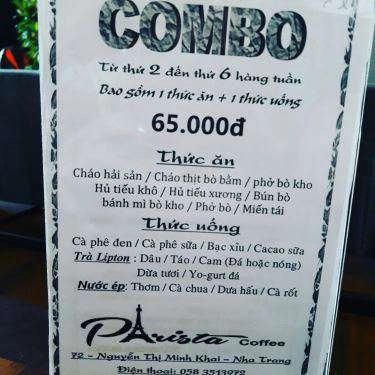 COMBO
Từ thứ 2 đến thứ 6 hàng tuần
Bao gồm 1 thức ăn + 1 thức uống
65.000đ
Thức ăn
Cháo hải sản / Cháo thịt bò bằm / phở bò kho
Hủ tiếu khô / Hủ tiếu xương / Bún bò
bánh mì bò kho / Phở bò / Miến tái
Thức uống
Cà phê đen / Cà phê sữa / Bạc xỉu / Cacao sữa
Trà Lipton : Dâu / Táo / Cam (Đá hoặc nóng)
Dừa tươi / Yo-gurt đá
Nước ép: Thơm / Cà chua / Dưa hấu / Cà rốt
PArista Coffee
72 - Nguyễn Thị Minh Khai - Nha Trang
Điện thoại: 058 3513972